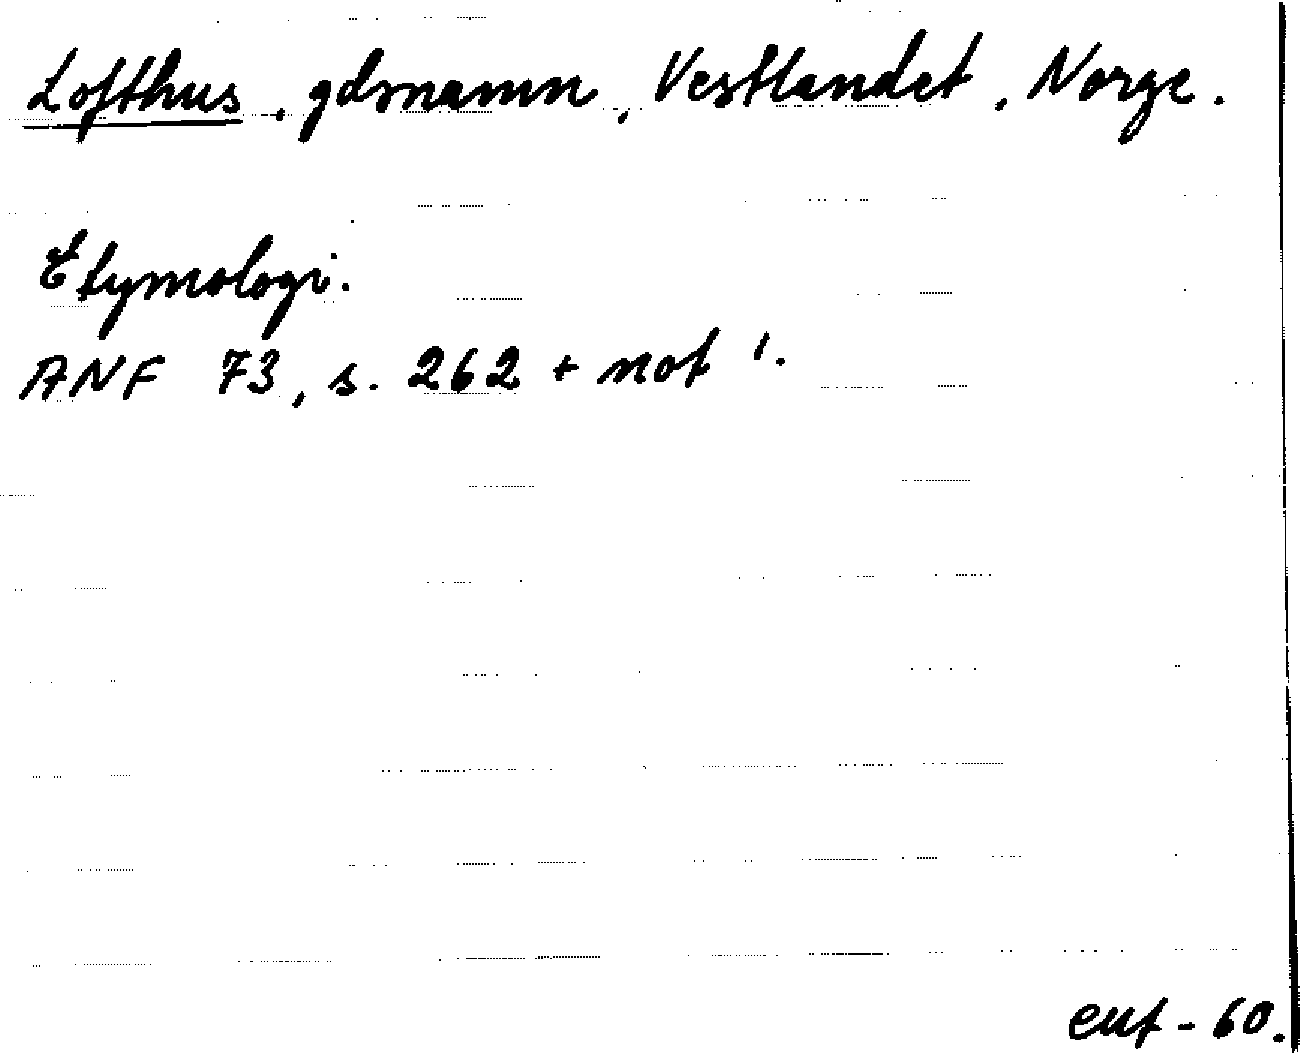 Lofthus, gdsnamn, Vestlandet, Norge.
Etymologi.
ANF 73, s. 262 + not 1.
euf - 60.